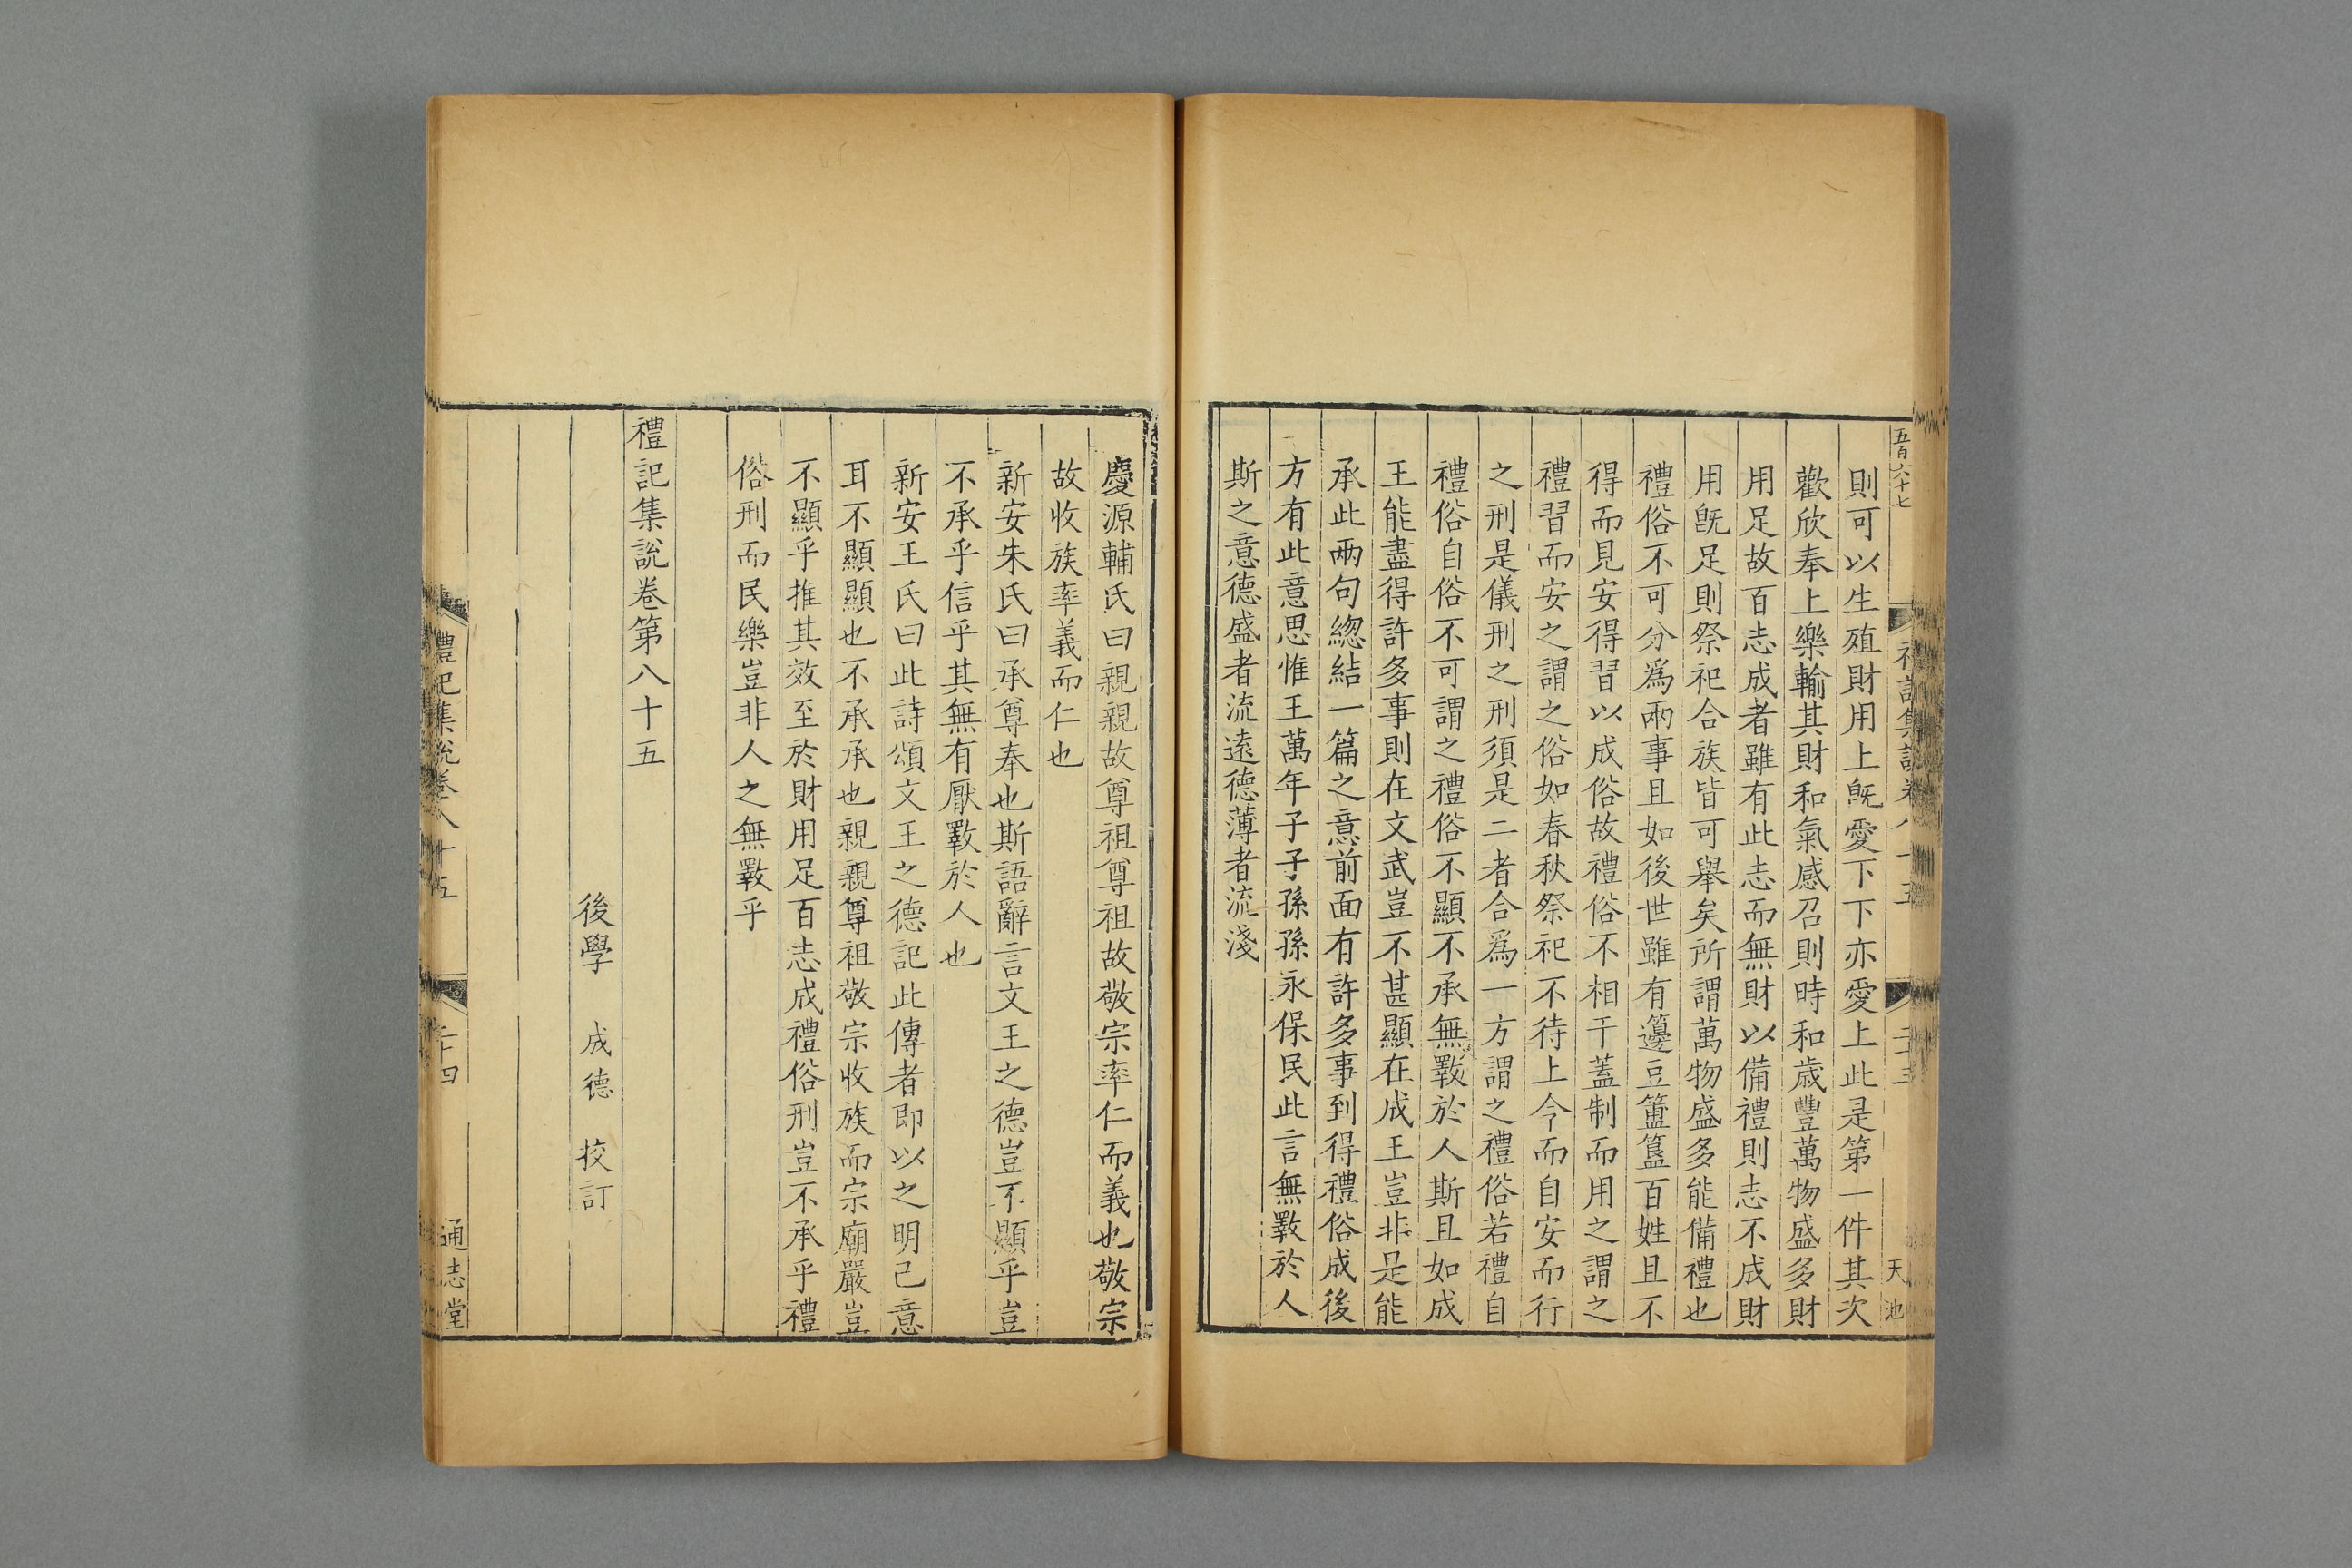 五百六十七
禮記集說卷八十五
二十三
天池
則可以生殖財用上旣愛下下亦愛上此是第一件其次
歡欣奉上樂輸其財和氣感召則時和歲豐萬物盛多財
用足故百志成者雖有此志而無財以備禮則志不成財
用旣足則祭祀合族皆可舉矣所謂萬物盛多能備禮也
禮俗不可分爲兩事且如後世雖有籩豆簠簋百姓且不
得而見安得習以成俗故禮俗不相干蓋制而用之謂之
禮習而安之謂之俗如春秋祭祀不待上令而自安而行
之刑是儀刑之刑須是二者合爲一方謂之禮俗若禮自
禮俗自俗不可謂之禮俗不顯不承無斁於人斯且如成
王能盡得許多事則在文武豈不甚顯在成王豈非是能
承此兩句總結一篇之意前面有許多事到得禮俗成後
方有此意思惟王萬年子子孫孫永保民此言無斁於人
斯之意德盛者流遠德薄者流淺
慶源輔氏曰親親故尊祖尊祖故敬宗率仁而義也敬宗
故收族率義而仁也
新安朱氏曰承尊奉也斯語辭言文王之德豈不顯乎豈
不承乎信乎其無有厭斁於人也
新安王氏曰此詩頌文王之德記此傳者即以之明己意
耳不顯顯也不承承也親親尊祖敬宗收族而宗廟嚴豈
不顯乎推其效至於財用足百志成禮俗刑豈不承乎禮
俗刑而民樂豈非人之無斁乎
禮記集說卷第八十五
後學 成德 挍訂
禮記集說卷八十五
二十四
通志堂